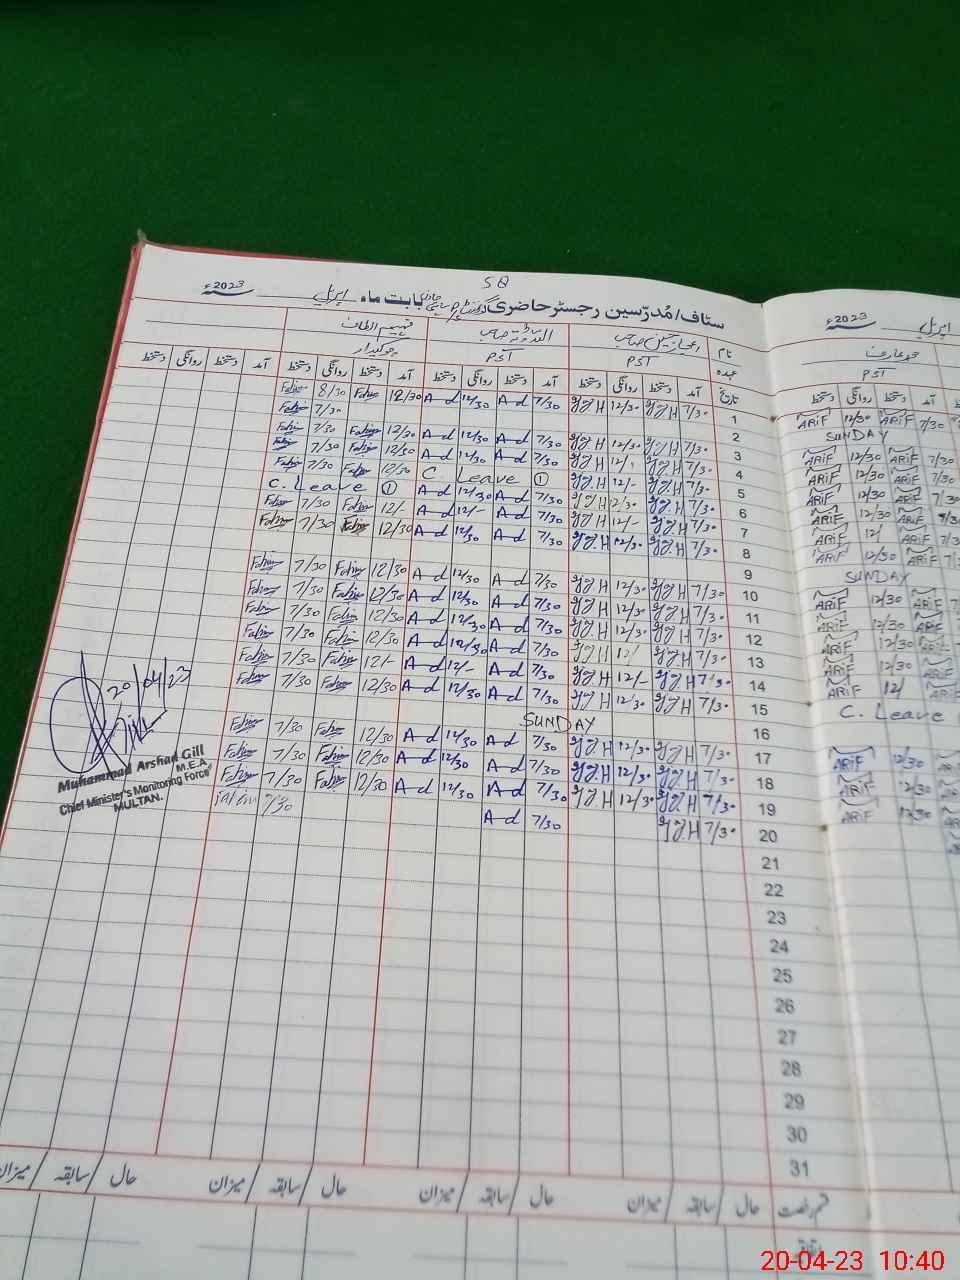 SQ
سٹاف/مُدرّسین رجسٹر حاضری بابت ماہ اپریل 2023ء
نام
عہدہ PST PST چوکیدار
تاریخ آمد دستخط روانگی دستخط آمد دستخط روانگی دستخط آمد دستخط روانگی دستخط آمد دستخط روانگی دستخط
1 7/30 G J H 12/30 G J H 7/30 A-d 12/30 A-d 12/30 Fahim 8/30 Fahim
2 Fahim 7/30
3 7/30 G J H 12/30 G J H 7/30 A-d 12/30 A-d 12/30 Fahim 7/30 Fahim
4 7/30 G J H 12/30 G J H 7/30 A-d 12/30 A-d 12/30 Fahim 7/30
5 7/30 G J H 12/- G J H C. Leave ① 12/30 Fahim 7/30 Fahim
6 7/30 G J H 12/30 G J H 7/30 A-d 12/30 A-d C. Leave ①
7 7/30 G J H 12/- G J H 7/30 A-d 12/- A-d 12/- Fahim 7/30 Fahim
8 7/30 G J H 12/30 G J H 7/30 A-d 12/30 A-d 12/30 Fahim 7/30 Fahim
9
10 7/30 G J H 12/30 G J H 7/30 A-d 12/30 A-d 12/30 Fahim 7/30 Fahim
11 7/30 G J H 12/30 G J H 7/30 A-d 12/30 A-d 12/30 Fahim 7/30 Fahim
12 7/30 G J H 12/30 G J H 7/30 A-d 12/30 A-d 12/30 Fahim 7/30 Fahim
13 7/30 G J H 12/ G J H 7/30 A-d 12/30 A-d 12/30 Fahim 7/30 Fahim
14 7/30 G J H 12/- G J H 7/30 A-d 12/- A-d 12/- Fahim 7/30 Fahim
15 7/30 G J H 12/30 G J H 7/30 A-d 12/30 A-d 12/30 Fahim 7/30 Fahim
16 SUNDAY
17 7/30 G J H 12/30 G J H 7/30 A-d 12/30 A-d 12/30 Fahim 7/30 Fahim
18 7/30 G J H 12/30 G J H 7/30 A-d 12/30 A-d 12/30 Fahim 7/30 Fahim
19 7/30 G J H 12/30 G J H 7/30 A-d 12/30 A-d 12/30 Fahim 7/30 Fahim
20 7/30 G J H 7/30 A-d 7/30 Fahim
21
22
23
24
25
26
27
28
29
30
31
قسم رخصت حال / سابقہ / میزان حال / سابقہ / میزان حال / سابقہ / میزان حال / سابقہ / میزان
20/04/23
Muhammad Arshad Gill
M.E.A
Chief Minister's Monitoring Force
MULTAN.
اپریل 2023ء
محمد عارف
PST
آمد دستخط روانگی دستخط
7/30 ARIF 12/30 ARIF
SUNDAY
7/30 ARIF 12/30 ARIF
7/30 ARIF 12/30 ARIF
ARIF 12/30 ARIF
ARIF 12/30 ARIF
ARIF 12/ ARIF
ARIF 12/30 ARIF
SUNDAY
ARIF 12/30 ARIF
ARIF 12/30 ARIF
12/30 ARIF
ARIF 12/30 ARIF
ARIF 12/ ARIF
C. Leave
12/30 ARIF
12/30 ARIF
12/30 ARIF
20-04-23 10:40